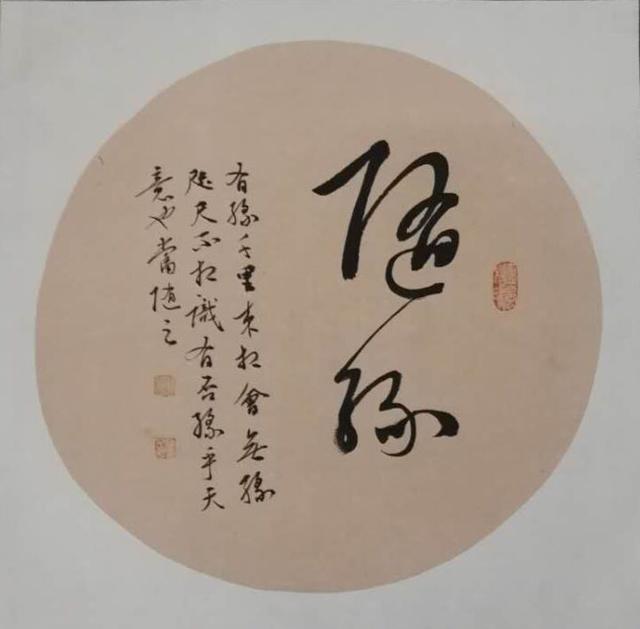 隨緣
有緣千里来相會無緣
咫尺不相識有否緣乎天
意也當随之